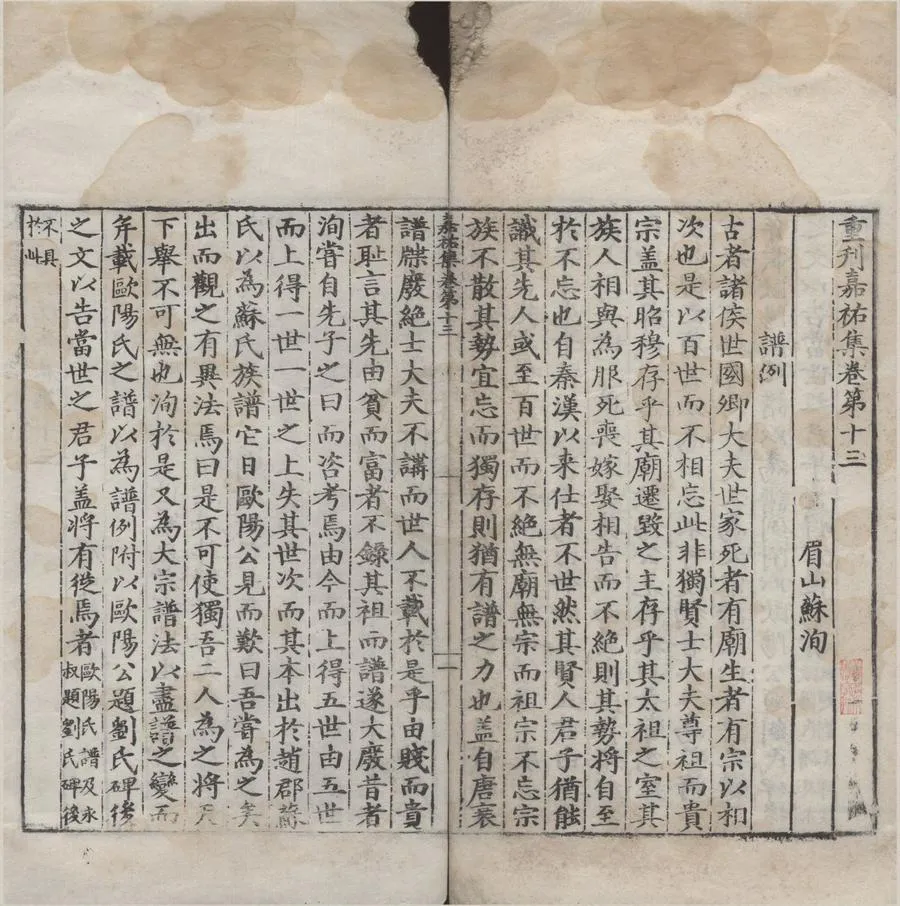 重刋嘉祐集卷第十三
眉山蘇洵
譜例
古者諸侯世國卿大夫世家死者有廟生者有宗以相
次也是以百世而不相忘此非獨賢士大夫尊祖而貴
宗盖其昭穆存乎其廟遷毀之主存乎其太祖之室其
族人相與為服死喪嫁娶相告而不絶則其勢將自至
於不忘也自秦漢以来仕者不世然其賢人君子猶能
識其先人或至百世而不絶無廟無宗而祖宗不忘宗
族不散其勢宜忘而獨存則猶有譜之力也盖自唐衰
嘉祐集卷第十三
一
譜牒廢絶士大夫不講而世人不載於是乎由賤而貴
者恥言其先由貧而富者不錄其祖而譜遂大廢昔者
洵嘗自先子之曰而咨考焉由今而上得五世由五世
而上得一世一世之上失其世次而其本出於趙郡蘇
氏以為蘇氏族譜它日歐陽公見而歎曰吾嘗為之矣
出而觀之有異法焉曰是不可使獨吾二人為之將天
下舉不可無也洵於是又為大宗譜法以盡譜之變而
并載歐陽氏之譜以為譜例附以歐陽公題劉氏碑後
之文以告當世之君子盖將有從焉者
歐陽氏譜及永
叔題劉氏碑後
不具
於此